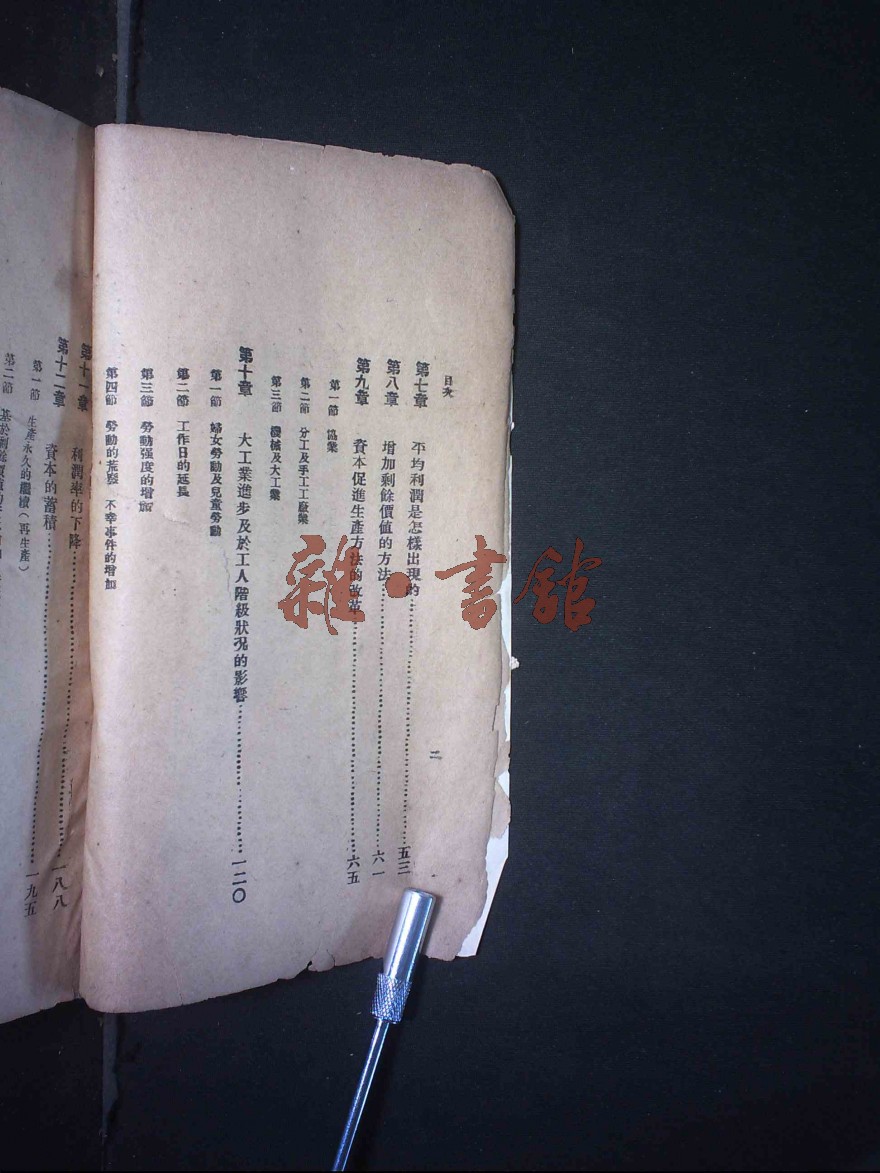 目次
第七章 平均利潤是怎樣出現的……五三
第八章 增加剩餘價値的方法……六一
第九章 資本促進生產方法的改革……六五
第一節 協業
第二節 分工及手工工廠業
第三節 機械及大工業
第十章 大工業進步及於工人階級狀况的影響……一二〇
第一節 婦女勞動及兒童勞動
第二節 工作日的延長
第三節 勞動强度的增加
第四節 勞動的荒廢 不幸事件的增加
二
第十一章 利潤率的下降……一八八
第十二章 資本的蓄積……一九五
第一節 生產永久的繼續（再生產）
第二節 基於剩餘價値的
雜·書館